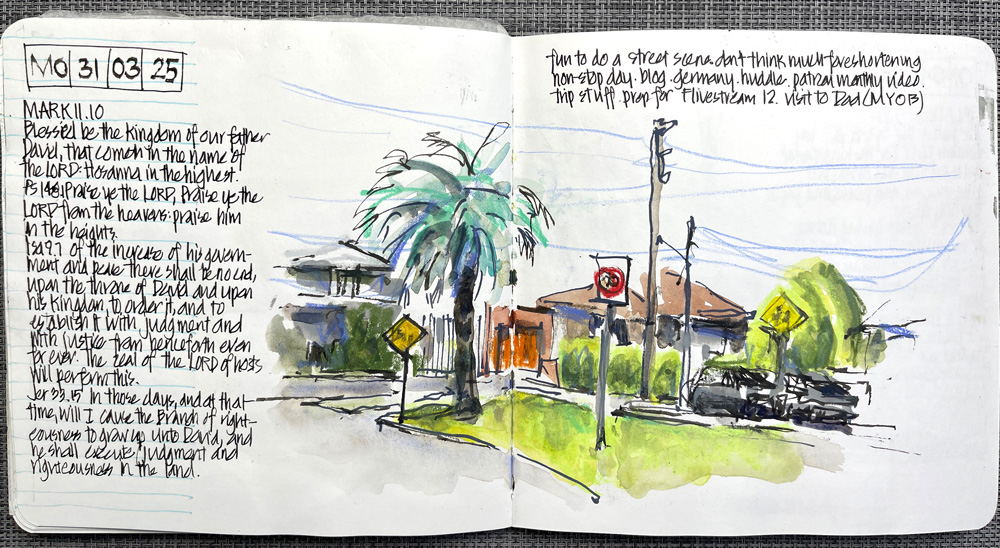 MO 31 03 25
MARK 11.10
Blessed be the kingdom of our father
David, that cometh in the name of
the LORD: Hosanna in the highest.
Ps 148.1 Praise ye the LORD, Praise ye the
LORD from the heavens: praise him
in the heights.
Isa 9.7 Of the increase of his govern-
ment and peace there shall be no end,
upon the throne of David and upon
his kingdom, to order it, and to
establish it with judgment and
with justice from henceforth even
for ever. The zeal of the LORD of hosts
will perform this.
Jer 33.15 In those days, and at that
time, will I cause the Branch of right-
eousness to grow up unto David, and
he shall execute judgment and
righteousness in the land.
fun to do a street scene. don't think much foreshortening
non-stop day. blog. germany. huddle. patreon monthly video.
trip stuff. prep for Flivestream 12. visit to Dad (MYOB)